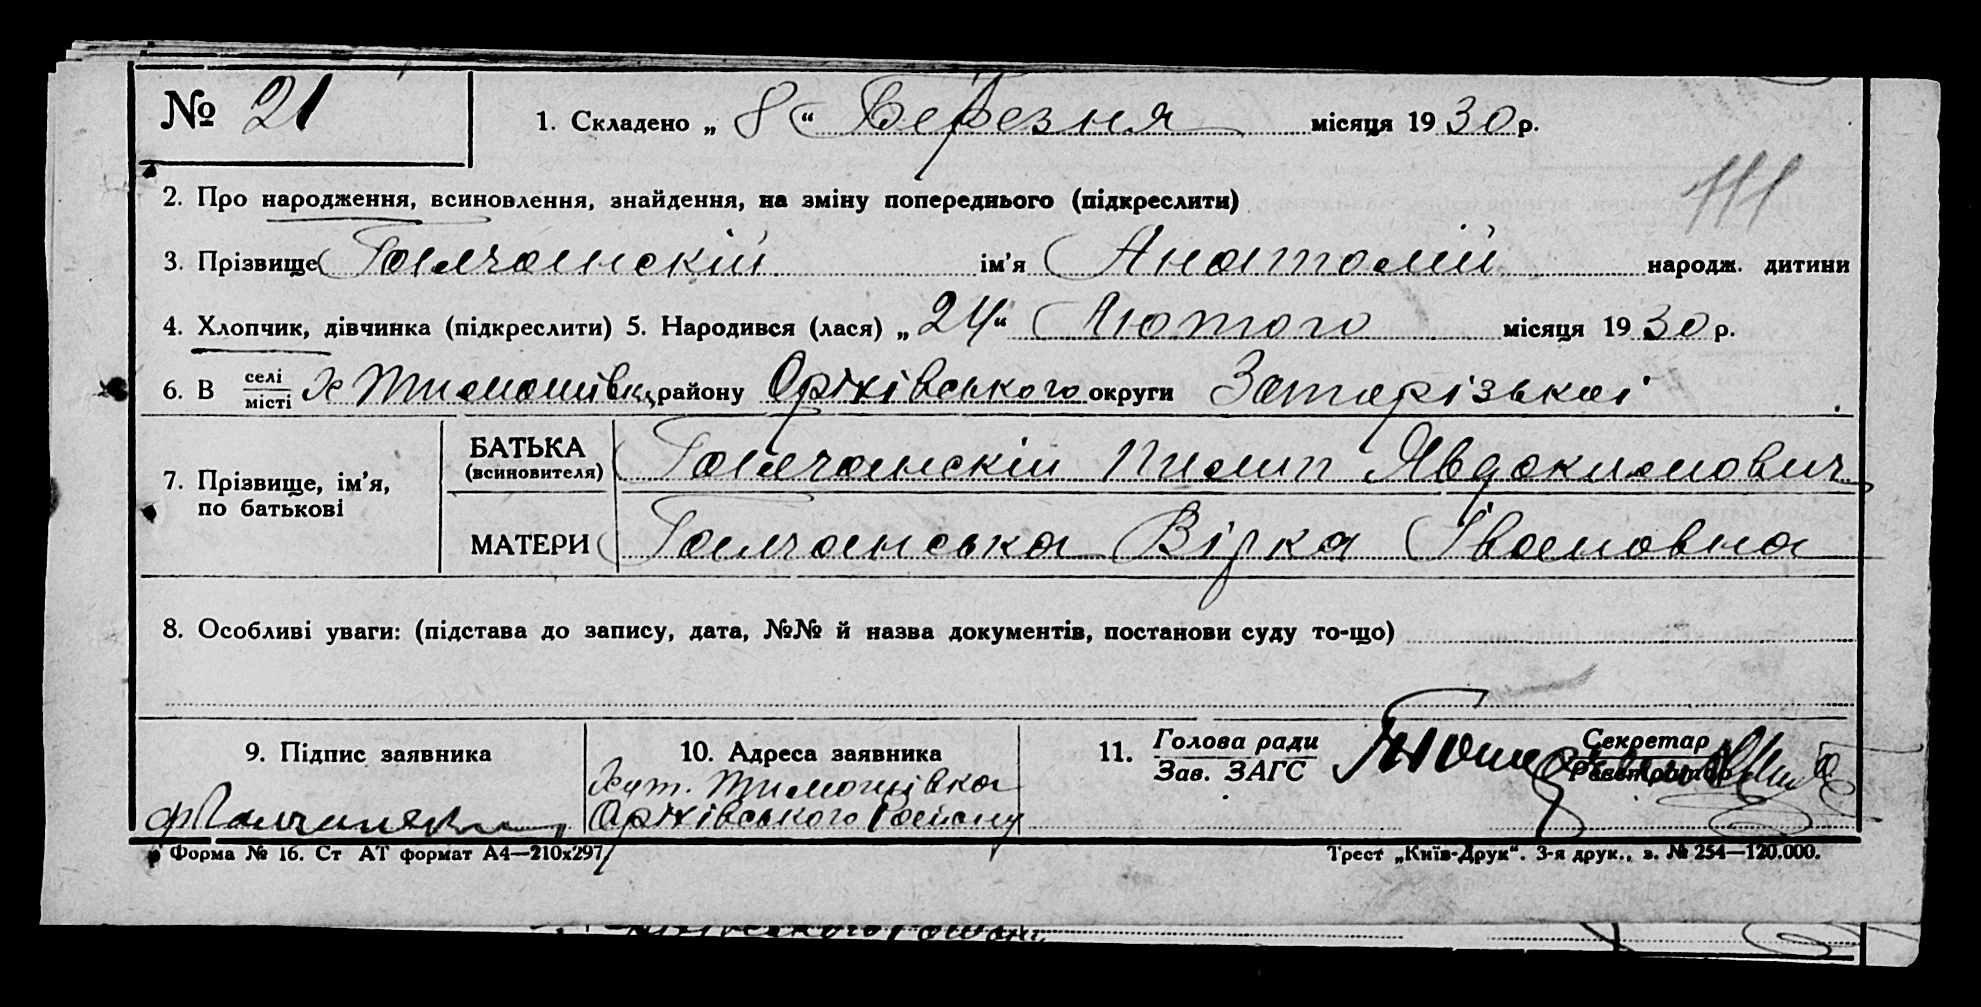 № 21
1. Складено „ 8 “ Березня місяця 1930 р.
111
2. Про народження, всиновлення, знайдення, на зміну попереднього (підкреслити)
3. Прізвище Галчанскій ім’я Анатолій народж. дитини
4. Хлопчик, дівчинка (підкреслити) 5. Народився (лася) „ 24 “ Лютого місяця 1930 р.
6. В селі місті х Тимошівка району Оріхівського округи Запорізької
7. Прізвище, ім’я, по батькові
БАТЬКА (всиновителя) Галчанскій Пилип Явдокимович
МАТЕРИ Галчанська Вірка Івановна
8. Особливі уваги: (підстава до запису, дата, №№ й назва документів, постанови суду то-що)
9. Підпис заявника
10. Адреса заявника
хут. Тимошівка
Оріхівського Району
11. Голова ради
Зав. ЗАГС
Секретар
Реєстратор
Форма № 16. Ст АТ формат А4—210х297
Трест „Київ-Друк“. 3-я друк., з. № 254—120.000.